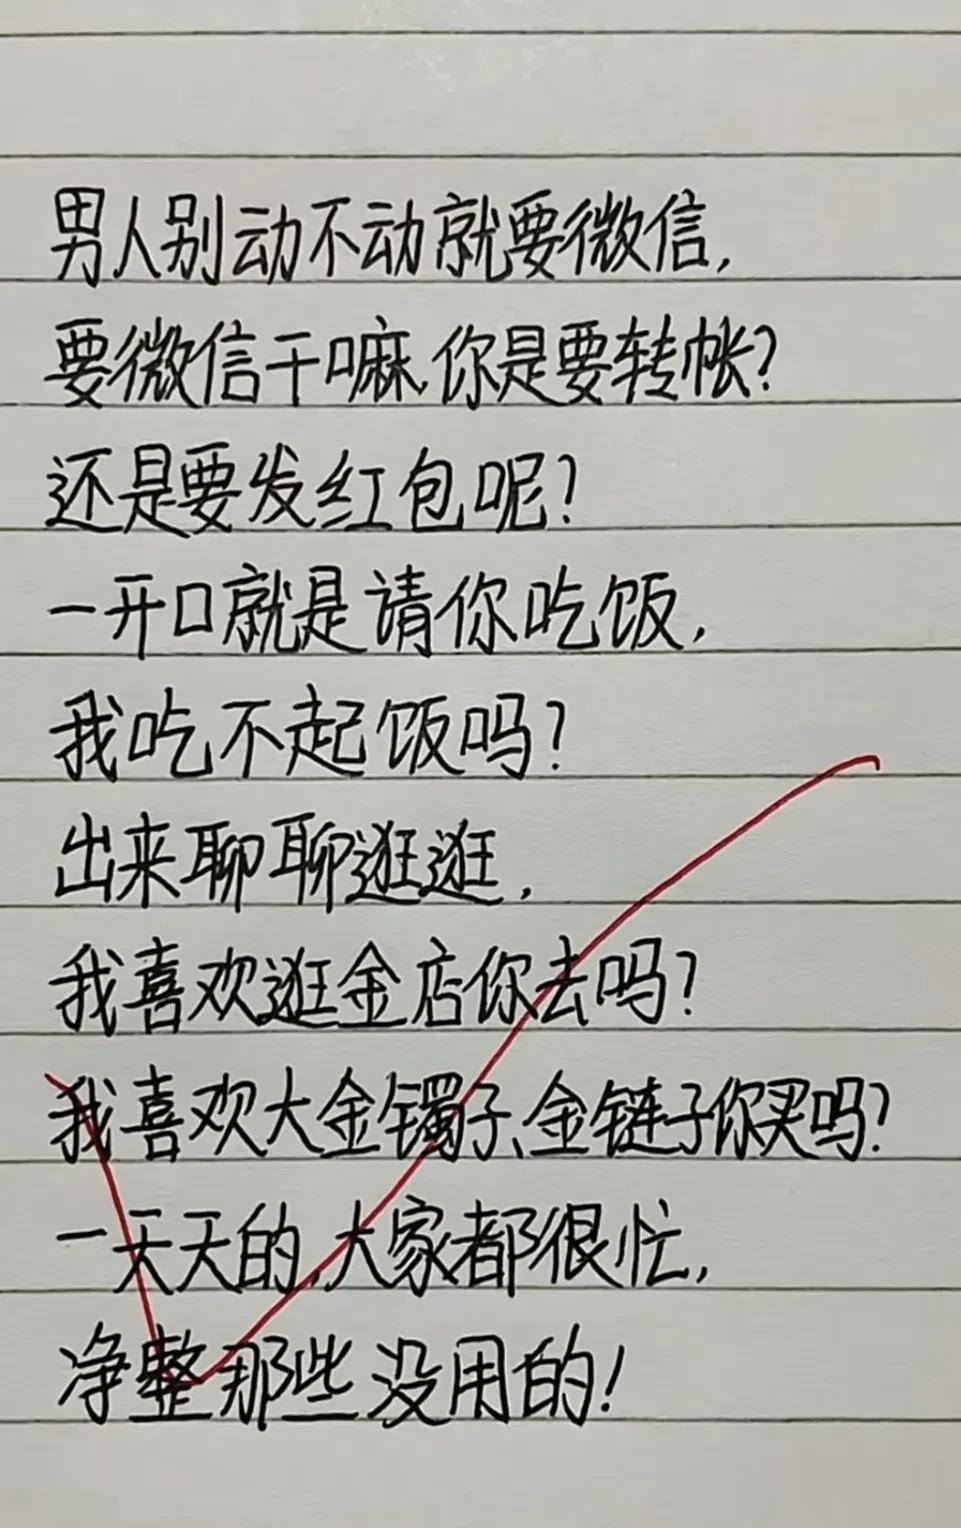 男人别动不动就要微信,
要微信干嘛,你是要转帐?
还是要发红包呢?
一开口就是请你吃饭,
我吃不起饭吗?
出来聊聊逛逛,
我喜欢逛金店你去吗?
我喜欢大金镯子、金链子你买吗?
一天天的,大家都很忙,
净整那些没用的!